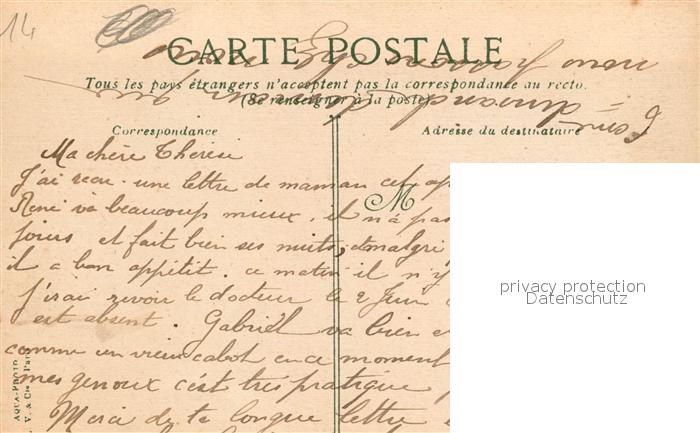 14
CARTE POSTALE
Tous les pays étrangers n'acceptent pas la correspondance au recto.
(Se renseigner à la poste).
Correspondance
Adresse du destinataire
M
Ma chère Thérèse
J'ai reçu une lettre de maman cet ap
René va beaucoup mieux, il n'a pas
jours et fait bien ses nuits, et malgré
il a bon appétit. ce matin il n'y
J'irai revoir le docteur le 2 Juin
est absent. Gabriël va bien e
comme un vieux cabot en ce moment
mes genoux c'est très pratique
Merci de ta longue lettre
privacy protection
Datenschutz
AQUA-PHOTO
V. & Cie